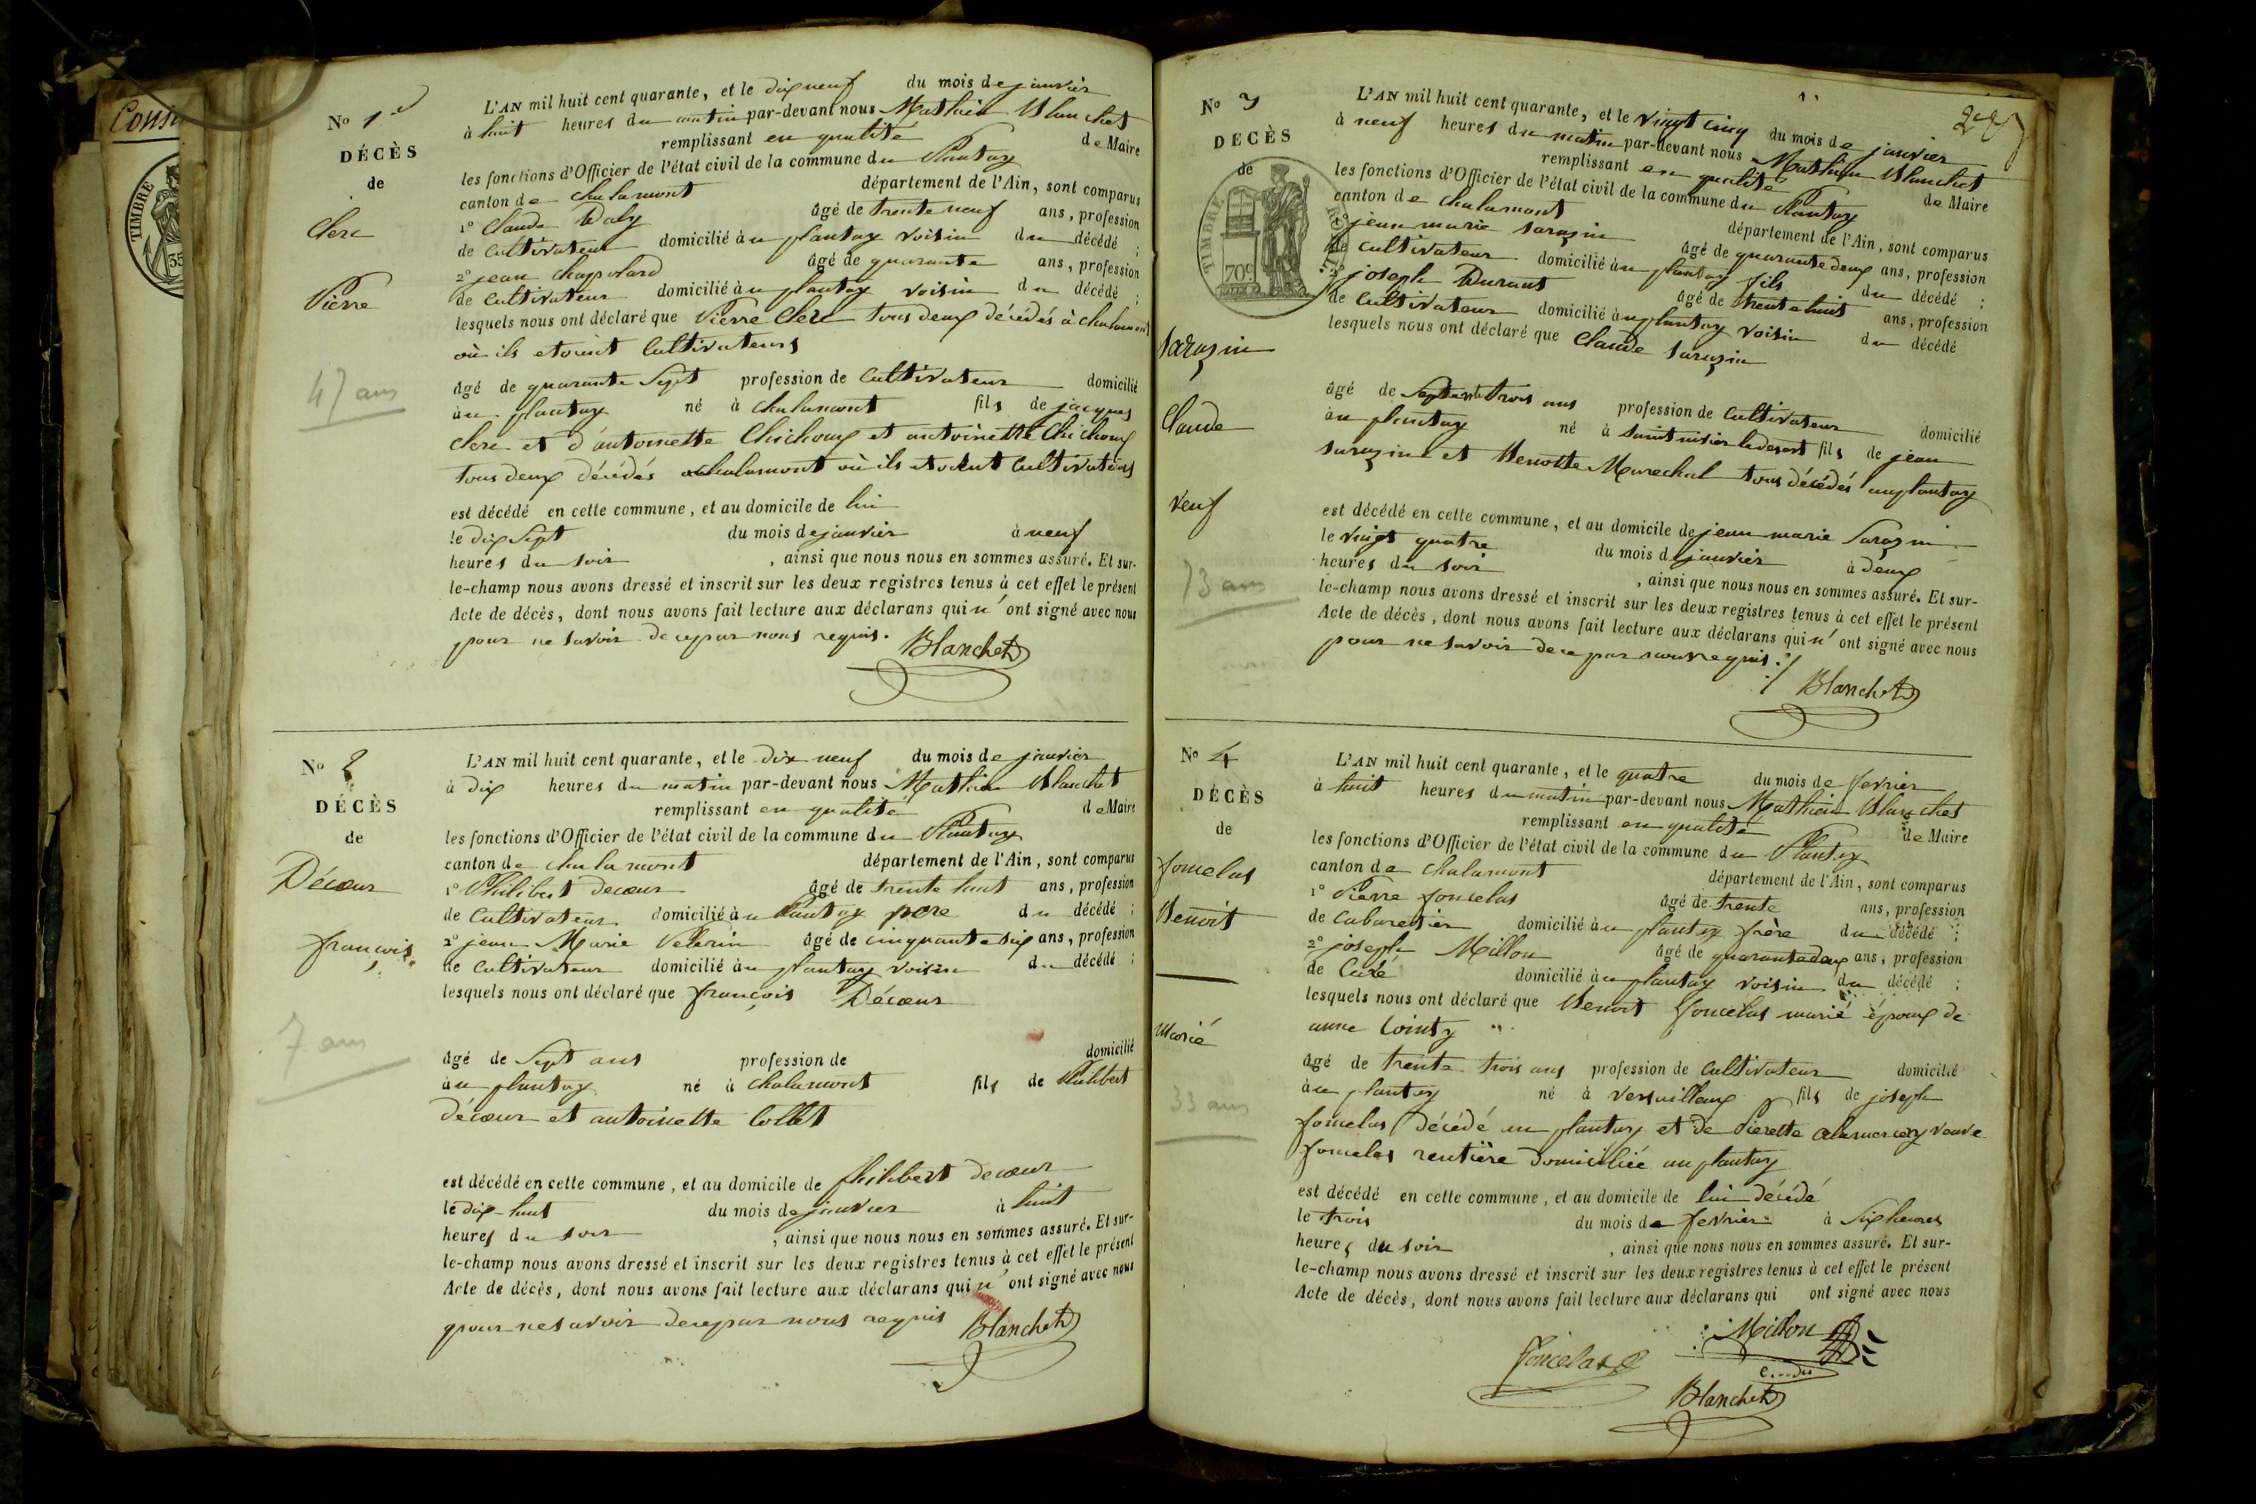 Cons
TIMBRE
35
No 1er
DÉCÈS
de
Clerc
Pierre
47 ans
L'AN mil huit cent quarante, et le dix neuf du mois de janvier
à huit heures du matin par-devant nous Mathieu Blanchet
remplissant en qualité de Maire
les fonctions d'Officier de l'état civil de la commune du Plantay
canton de chalamont département de l'Ain, sont comparus
1° Claude Daly âgé de trente neuf ans, profession
de cultivateur domicilié au plantay voisin du décédé ;
2° jean chapolard âgé de quarante ans, profession
de cultivateur domicilié au plantay voisin du décédé ;
lesquels nous ont déclaré que Pierre Clerc tous deux décédés à chalamont
où ils etoient Cultivateurs
âgé de quarante Sept profession de Cultivateur domicilié
au plantay né à chalamont fils de jacques
Clerc et d'antoinette Chichoux et antoinette Chichoux
tous deux décédés a chalamont où ils etoient Cultivateurs
est décédé en cette commune, et au domicile de lui
le dix Sept du mois de janvier à neuf
heures du soir , ainsi que nous nous en sommes assuré. Et sur-
le-champ nous avons dressé et inscrit sur les deux registres tenus à cet effet le présent
Acte de décès, dont nous avons fait lecture aux déclarans qui n'ont signé avec nous
pour ne savoir de ce par nous requis. Blanchet
No 2
DÉCÈS
de
Décœur
françois
7 ans
L'AN mil huit cent quarante, et le dix neuf du mois de janvier
à dix heures du matin par-devant nous Mathieu Blanchet
remplissant en qualité de Maire
les fonctions d'Officier de l'état civil de la commune du Plantay
canton de chalamont département de l'Ain, sont comparus
1° Philibert decœur âgé de trente huit ans, profession
de Cultivateur domicilié au Plantay père du décédé ;
2° jean Marie Pelerin âgé de cinquante six ans, profession
de Cultivateur domicilié au plantay voisin du décédé ;
lesquels nous ont déclaré que françois Décœur
âgé de Sept ans profession de domicilié
au plantay né à chalamont fils de Philibert
décœur et antoinette Collet
est décédé en cette commune, et au domicile de philibert decœur
le dix-huit du mois de janvier à huit
heures du soir , ainsi que nous nous en sommes assuré. Et sur-
le-champ nous avons dressé et inscrit sur les deux registres tenus à cet effet le présent
Acte de décès, dont nous avons fait lecture aux déclarans qui n'ont signé avec nous
pour ne savoir de ce par nous requis Blanchet
No 3
DECÈS
de
TIMBRE
70c
Sarazin
Claude
veuf
73 ans
L'AN mil huit cent quarante, et le vingt cinq du mois de janvier
à neuf heures du matin par-devant nous Mathieu Blanchet
remplissant en qualité de Maire
les fonctions d'Officier de l'état civil de la commune du Plantay
canton de chalamont département de l'Ain, sont comparus
1° jean marie sarazin âgé de quarante deux ans, profession
de cultivateur domicilié au plantay fils du décédé ;
2° joseph Durant âgé de trente huit ans, profession
de Cultivateur domicilié au plantay voisin du décédé
lesquels nous ont déclaré que Claude sarazin
âgé de Septente trois ans profession de Cultivateur domicilié
au plantay né à saint nisier le desert fils de jean
sarazin et Benotte Marechal tous décédés au plantay
est décédé en cette commune, et au domicile de jean marie Sarazin
le vingt quatre du mois de janvier à deux
heures du soir , ainsi que nous nous en sommes assuré. Et sur-
le-champ nous avons dressé et inscrit sur les deux registres tenus à cet effet le présent
Acte de décès, dont nous avons fait lecture aux déclarans qui n'ont signé avec nous
pour ne savoir de ce par nous requis.
Blanchet
No 4
DÉCÈS
de
foncelas
Benoit
Marié
33 ans
L'AN mil huit cent quarante, et le quatre du mois de fevrier
à huit heures du matin par-devant nous Mathieu Blanchet
remplissant en qualité de Maire
les fonctions d'Officier de l'état civil de la commune du Plantay
canton de chalamont département de l'Ain, sont comparus
1° Pierre foncelas âgé de trente ans, profession
de cabaretier domicilié au plantay frère du décédé ;
2° joseph Millon âgé de quarante deux ans, profession
de Curé domicilié au plantay voisin du décédé ;
lesquels nous ont déclaré que Benoit foncelas marié époux de
anne Cointy
âgé de trente trois ans profession de Cultivateur domicilié
au plantay né à versailleux fils de joseph
foncelas décédé au plantay et de Pierette veuve
foncelas rentière domiciliée au plantay
est décédé en cette commune, et au domicile de lui décédé
le trois du mois de fevrier à Six heures
heures du soir , ainsi que nous nous en sommes assuré. Et sur-
le-champ nous avons dressé et inscrit sur les deux registres tenus à cet effet le présent
Acte de décès, dont nous avons fait lecture aux déclarans qui ont signé avec nous
Millon
foncelas
Blanchet